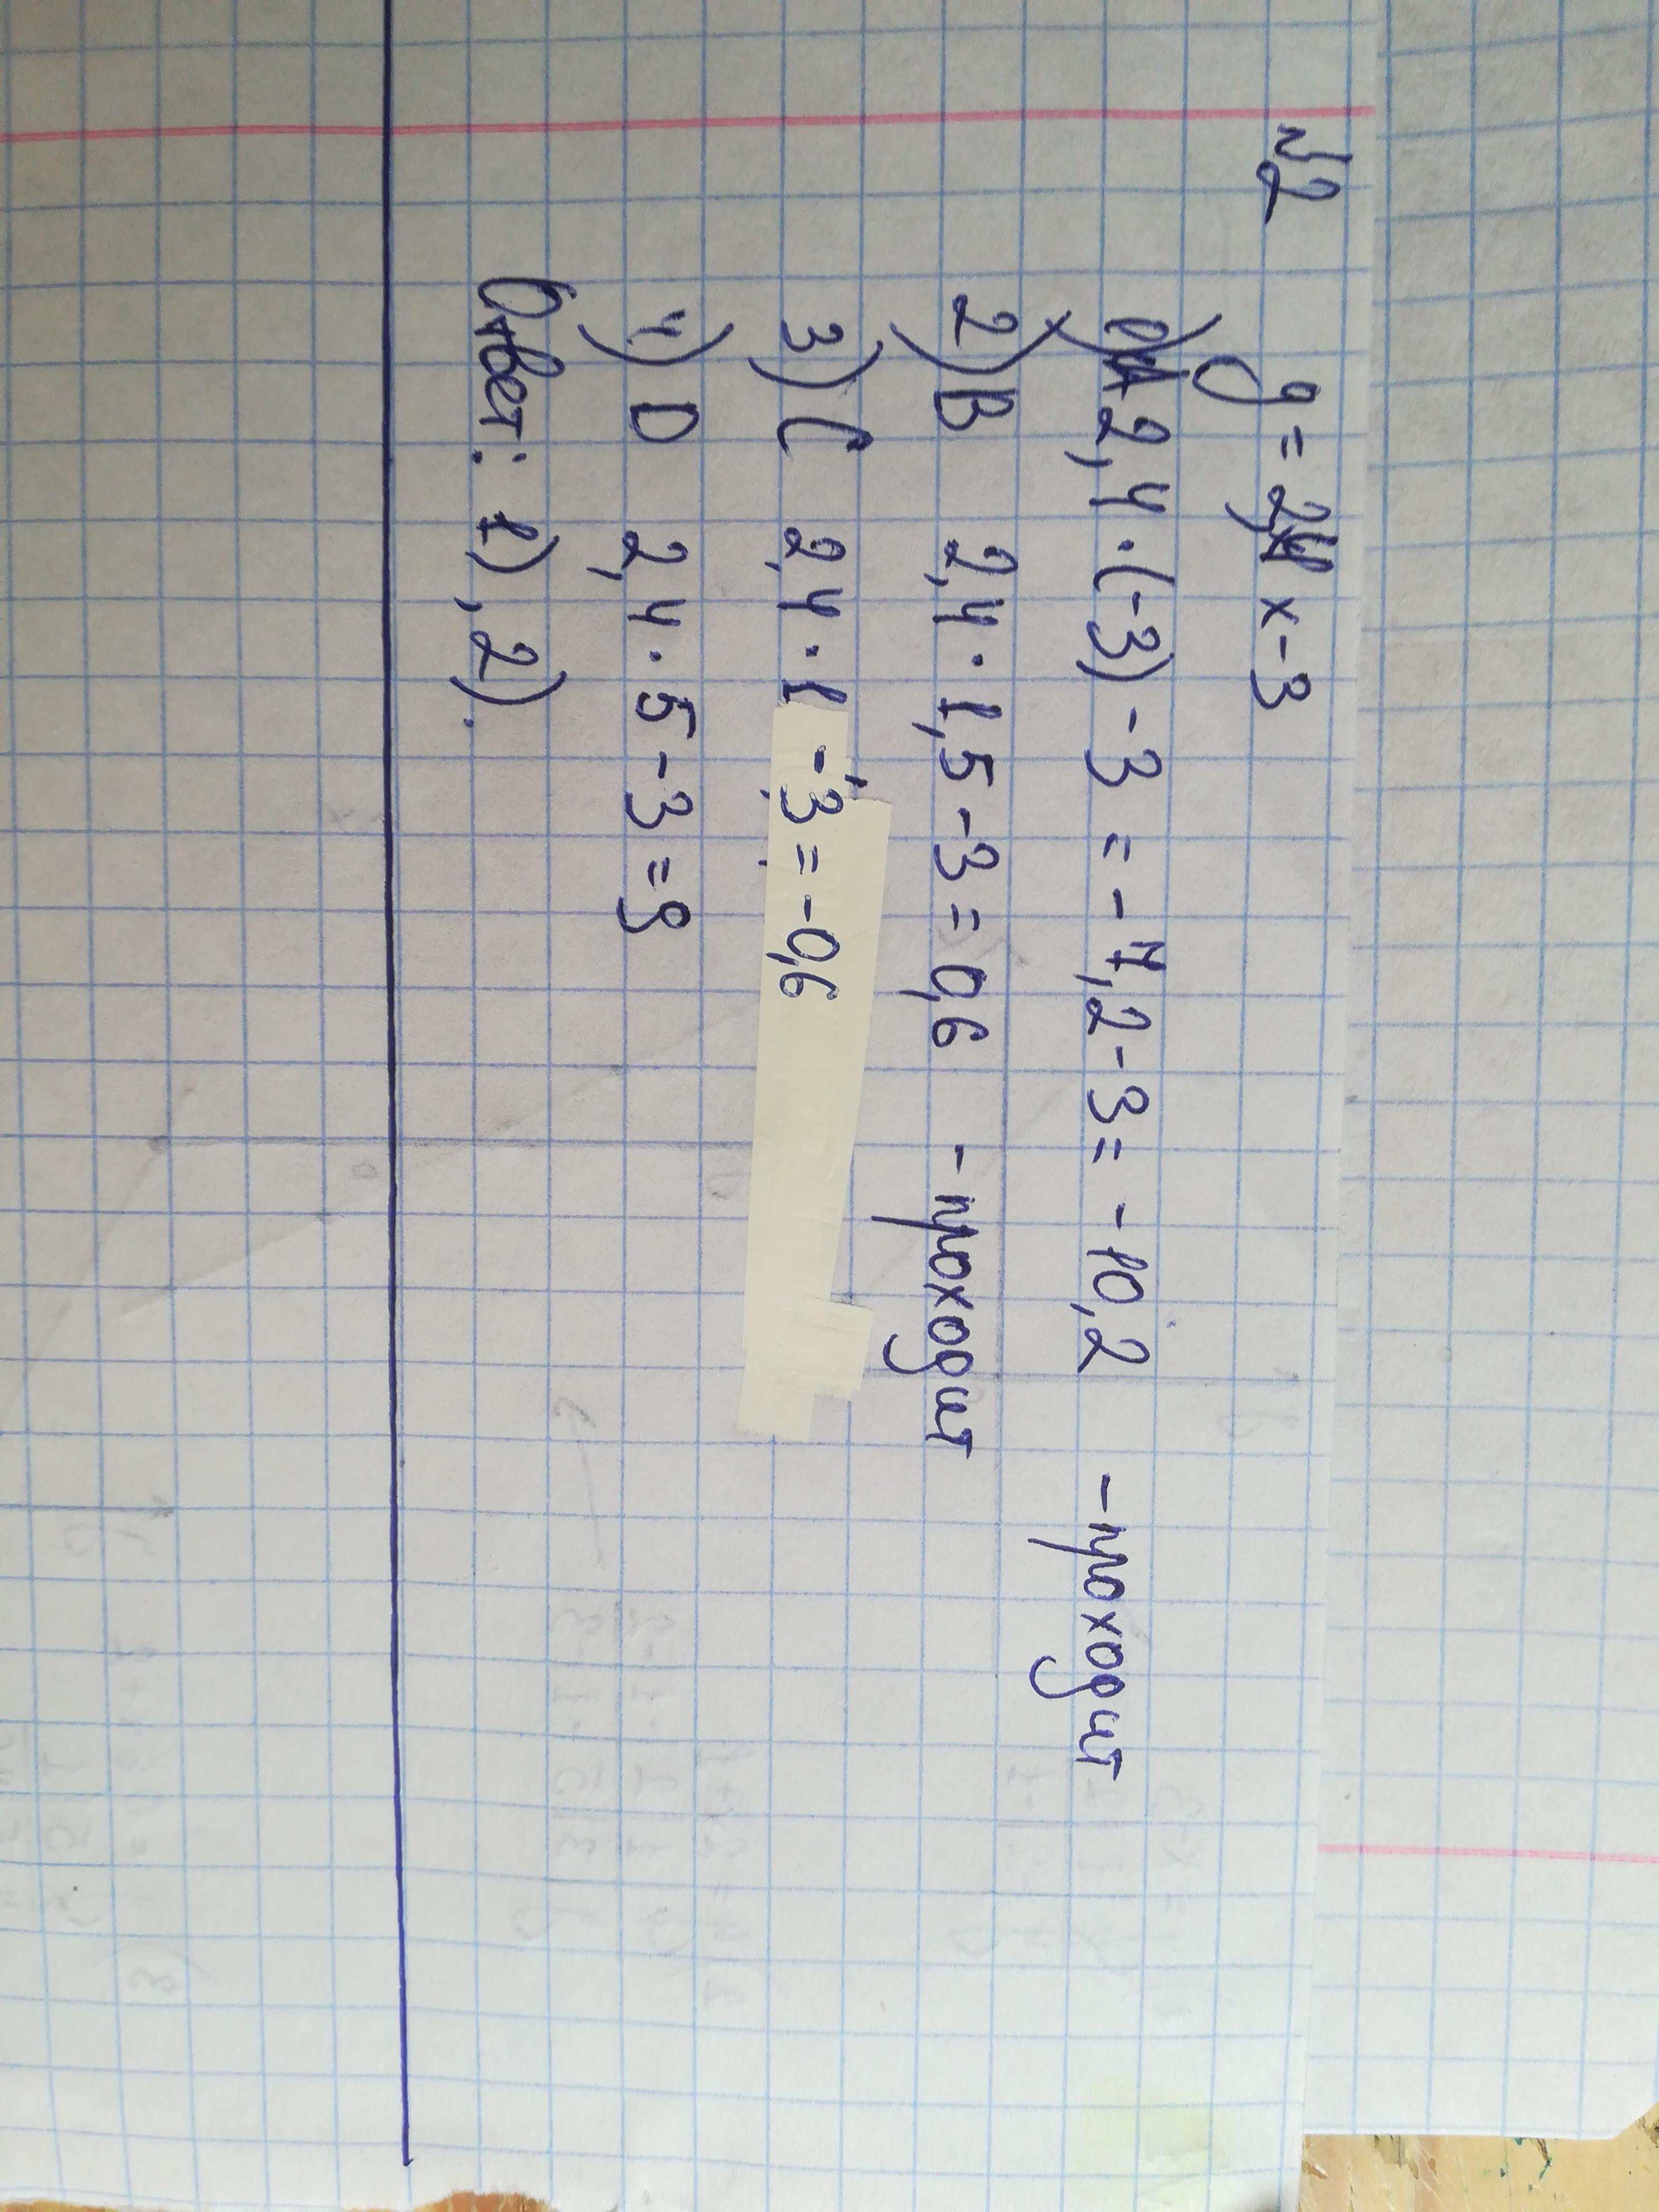 №2
y = 2,4x-3
1) A 2,4·(-3)-3 = -7,2-3= -10,2 -проходит
2) B 2,4·1,5-3=0,6 -проходит
3) C 2,4·1-3=-0,6
4) D 2,4·5-3=9
Ответ: 1), 2).